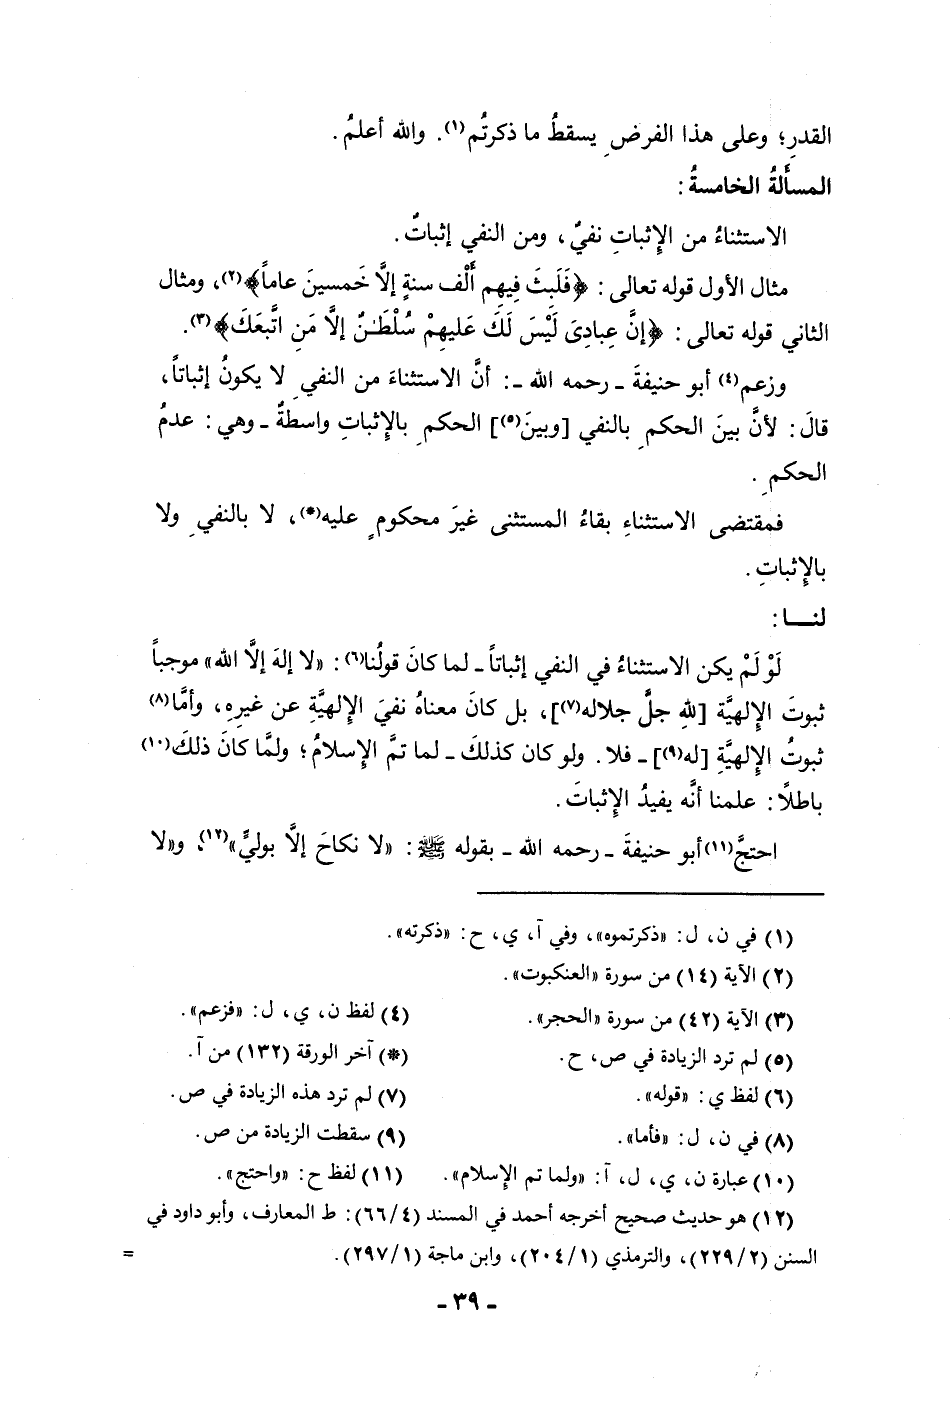 القدرِ؛ وعلى هذا الفرضِ يسقطُ ما ذكرتُم(١). والله أعلمُ.
المسأَلةُ الخامسةُ:
الاستثناءُ من الإِثباتِ نفيٌ، ومن النفي إثباتٌ.
مثال الأول قوله تعالى: ﴿فَلَبِثَ فِيهِم أَلْف سنةٍ إلَّا خَمسينَ عاماً﴾(٢)، ومثال
الثاني قوله تعالى: ﴿إنَّ عبادِىَ لَيْسَ لَكَ عَليهِمْ سُلْطَـٰنٌ إلَّا مَنِ اتَّبعَكَ﴾(٣).
وزعم(٤) أبو حنيفةَ ـ رحمه الله ـ: أنَّ الاستثناءَ من النفيِ لا يكونُ إثباتاً،
قالَ: لأنَّ بينَ الحكمِ بالنفي [وبينَ(٥)] الحكمِ بالإِثباتِ واسطةٌ ـ وهي: عدمُ
الحكمِ.
فمقتضى الاستثناءِ بقاءُ المستثنى غيرَ محكومٍ عليه(*)، لا بالنفيِ ولا
بالإِثباتِ.
لنـــا:
لَوْ لَمْ يكن الاستثناءُ في النفي إثباتاً ـ لما كانَ قولُنا(٦): «لا إلهَ إلَّا الله» موجباً
ثبوتَ الإِلهيَّةِ [للهِ جلَّ جلاله(٧)]، بل كانَ معناهُ نفيَ الإِلهيَّةِ عن غيرِهِ، وأمَّا(٨)
ثبوتُ الإِلهيَّةِ [له(٩)] ـ فلا. ولو كان كذلكَ ـ لما تمَّ الإِسلامُ؛ ولمَّا كانَ ذلكَ(١٠)
باطلًا: علمنا أنَّه يفيدُ الإِثباتَ.
احتجَّ(١١) أبو حنيفةَ ـ رحمه الله ـ بقوله ﷺ: «لا نكاحَ إلَّا بوليٍّ»(١٢)، و«لا
(١) في ن، ل: «ذكرتموه»، وفي آ، ي، ح: «ذكرته».
(٢) الآية (١٤) من سورة «العنكبوت».
(٣) الآية (٤٢) من سورة «الحجر». (٤) لفظ ن، ي، ل: «فزعم».
(٥) لم ترد الزيادة في ص، ح. (*) آخر الورقة (١٣٢) من آ.
(٦) لفظ ي: «قوله». (٧) لم ترد هذه الزيادة في ص.
(٨) في ن، ل: «فأما». (٩) سقطت الزيادة من ص.
(١٠) عبارة ن، ي، ل، آ: «ولما تم الإِسلام». (١١) لفظ ح: «واحتج».
(١٢) هو حديث صحيح أخرجه أحمد في المسند (٦٦/٤): ط المعارف، وأبو داود في
السنن (٢٢٩/٢)، والترمذي (٢٠٤/١)، وابن ماجة (٢٩٧/١). =
ـ ٣٩ ـ